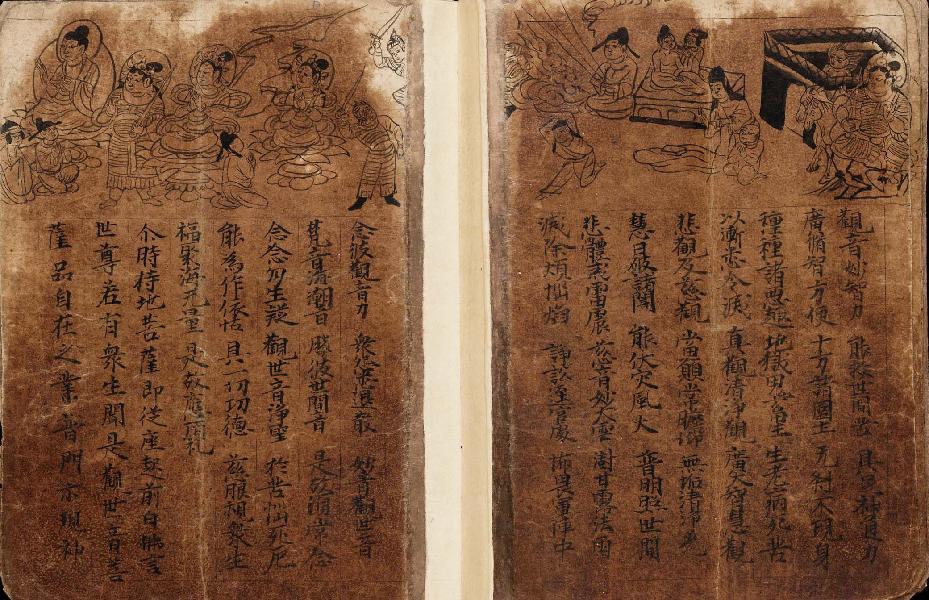 觀音妙智力 能救世間苦 具足神通力
廣脩智方便 十方諸國土 无刹不現身
種種諸惡趣 地獄鬼畜生 生老病死苦
以漸悉令滅 真觀清淨觀 廣大智慧觀
悲觀及慈觀 常願常瞻仰 無垢清淨光
慧日破諸闇 能伏灾風火 普明照世間
悲體戒雷震 慈音妙大雲 澍甘露法雨
滅除煩惱焰 諍訟經官處 怖畏軍陣中
念彼觀音力 衆怨悉退散 妙音觀世音
梵音海潮音 勝彼世間音 是故須常念
念念勿生疑 觀世音淨聖 於苦惱死厄
能為作依怙 具一切功德 慈眼視衆生
福聚海无量 是故應頂礼
尒時持地菩薩即從座起前白佛言
世尊若有衆生聞是觀世音菩
薩品自在之業普門示現神